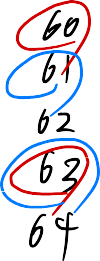 60
61
62
63
64